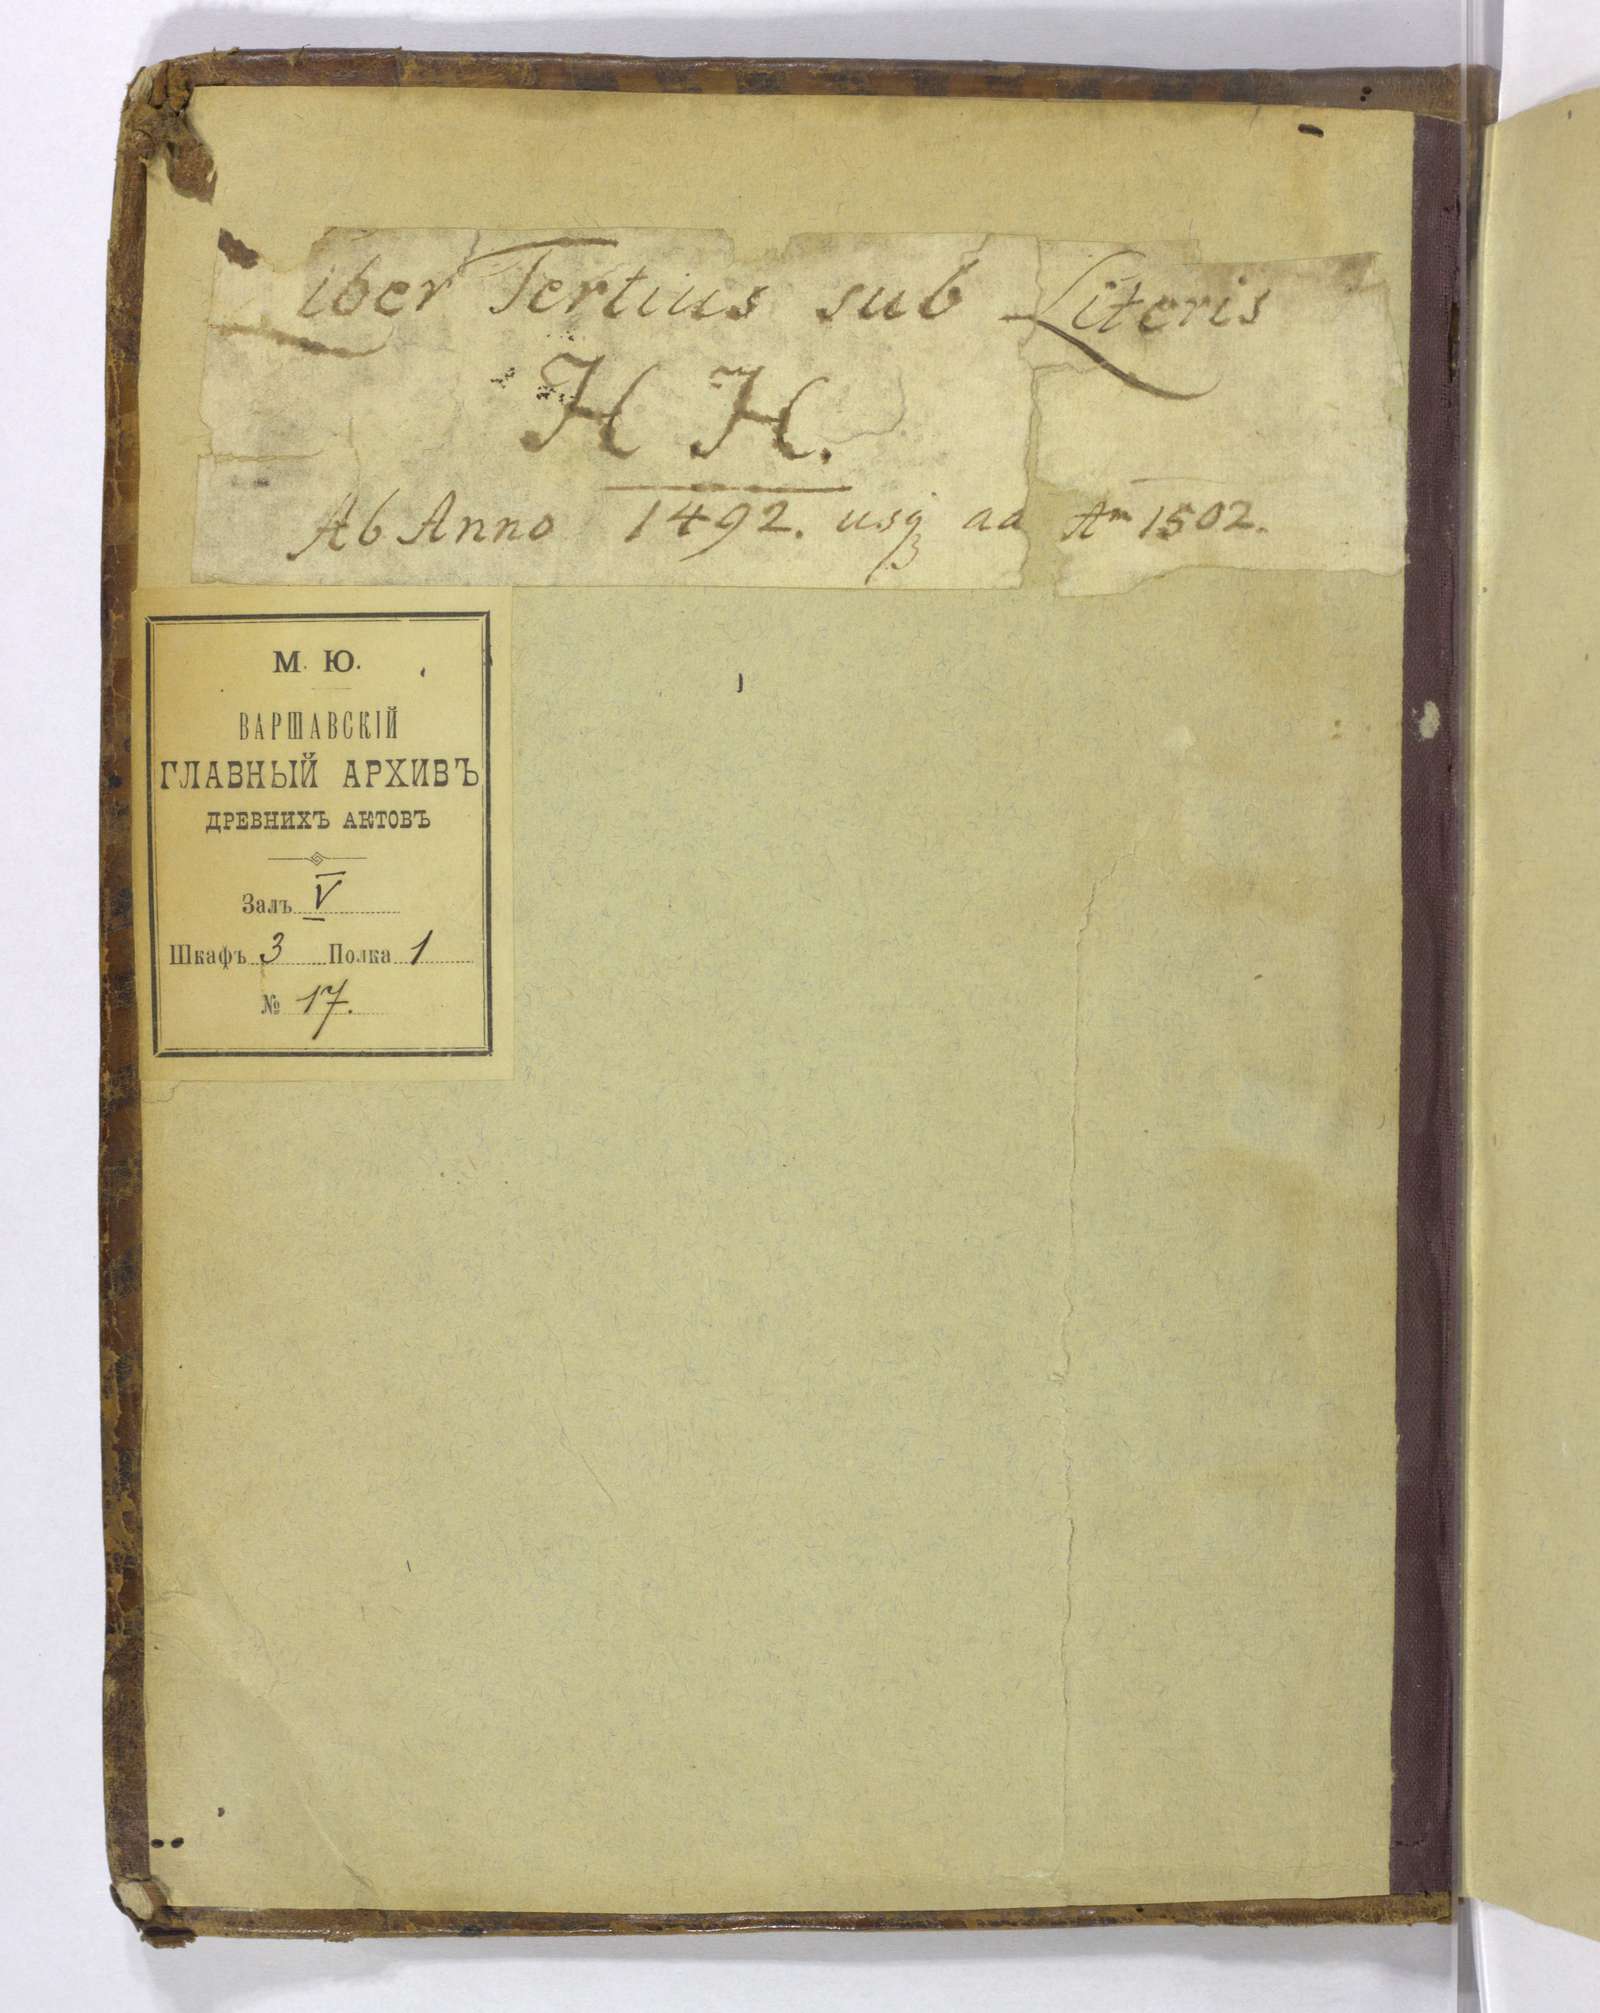 Liber Tertius sub Literis
H H.
Ab Anno 1492. usq ad Am 1502.
М. Ю.
ВАРШАВСКІЙ
ГЛАВНЫЙ АРХИВЪ
ДРЕВНИХЪ АКТОВЪ
Залъ V
Шкафъ 3 Полка 1
№ 17.